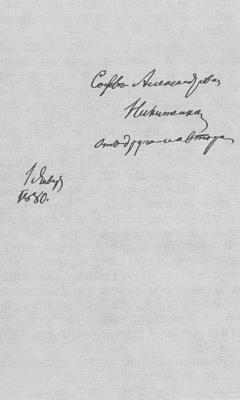 Софье Александровне
Никитенко
от друга и автора
1 Январ.
1880.